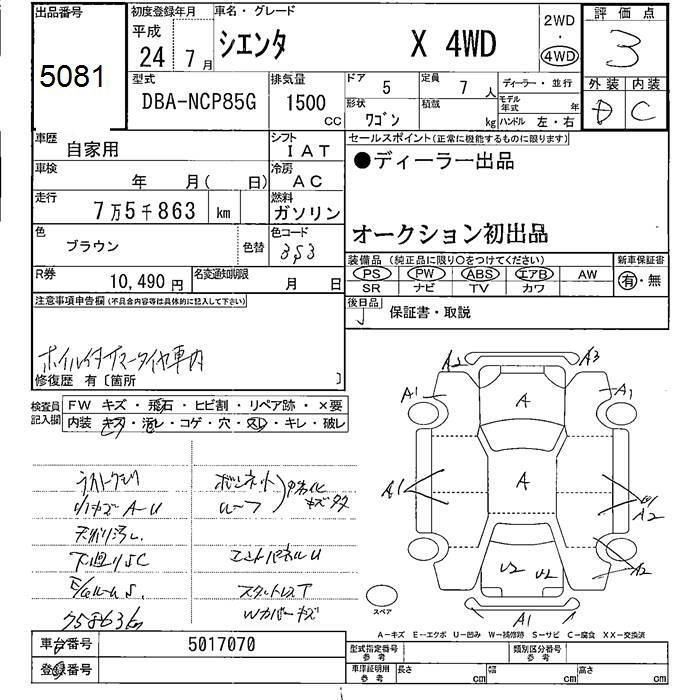 出品番号 初度登録年月 車名・グレード 評価点
5081 平成 24年 7月 シエンタ X 4WD 2WD・4WD 3
型式 排気量 ドア 5 定員 7人 ディーラー・並行 外装 内装
DBA-NCP85G 1500cc 形状 ワゴン 積載 kg モデル年式 年 ハンドル 左・右 D C
車歴 自家用 シフト IAT セールスポイント(正常に機能するものに限ります)
車検 年 月( 日) 冷房 AC ●ディーラー出品
走行 7万5千863 km 燃料 ガソリン
オークション初出品
色 ブラウン 色替 色コード 3S3
装備品(純正品に限り〇をつけてください) 新車保証書
R券 10,490円 名変通知期限 月 日 PS PW ABS エアB AW 有・無
SR ナビ TV カワ
注意事項申告欄(不具合内容等は具体的に記入して下さい) 後日品 保証書・取説
ホイル付サマータイヤ車内
修復歴 有〔箇所 〕
検査員記入欄 FW キズ・飛石・ヒビ割・リペア跡・×要
内装 キズ・汚レ・コゲ・穴・スレ・キレ・破レ
A2 A3
A1 A A1
A1 A A2
A2
U2 U2
A1
スペア
小キズA-U ルーフ キズ
天張り汚レ
下廻りSC エンドパネルU
スタットレスT
75863km Wカバーキズ
A-キズ E-エクボ U-凹み W-補修跡 S-サビ C-腐食 XX-交換済
車台番号 5017070 型式指定番号 参考 類別区分番号 参考
登録番号 車庫証明用 参考 長さ cm 幅 cm 高さ cm